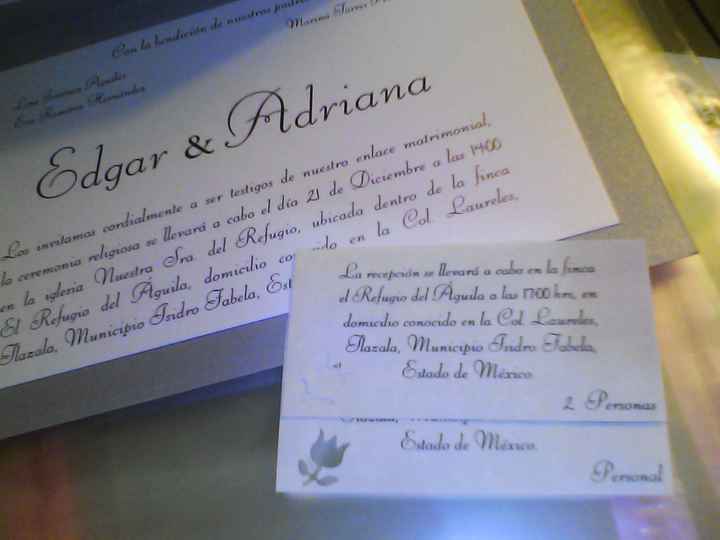 Con la bendición de nuestros padres
Marina Torres
Lino Jiménez
Eva Ramírez Hernández
Edgar & Adriana
Los invitamos cordialmente a ser testigos de nuestro enlace matrimonial,
la ceremonia religiosa se llevará a cabo el día 21 de Diciembre a las 14:00
en la iglesia Nuestra Sra. del Refugio, ubicada dentro de la finca
El Refugio del Águila, domicilio en la Col. Laureles,
Tlazala, Municipio Isidro Fabela,
La recepción se llevará a cabo en la finca
el Refugio del Águila a las 17:00 hrs, en
domicilio conocido en la Col. Laureles,
Tlazala, Municipio Isidro Fabela,
Estado de México.
2 Personas
Estado de México.
Personal